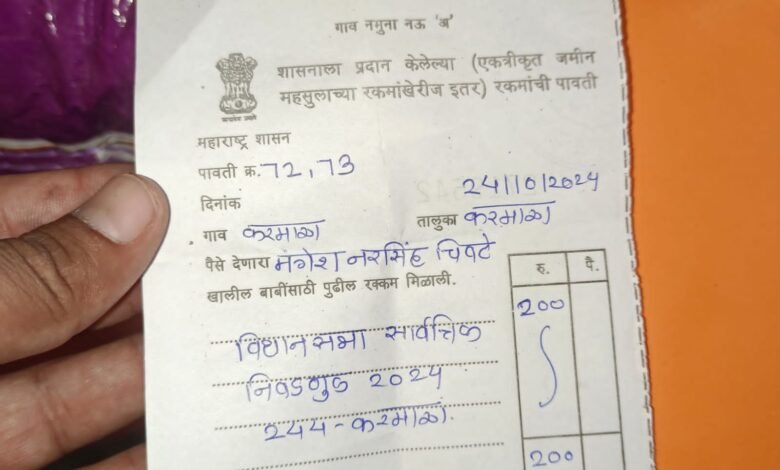 गाव नमुना नऊ 'अ'
शासनाला प्रदान केलेल्या (एकत्रीकृत जमीन
महसुलाच्या रकमांखेरीज इतर) रकमांची पावती
महाराष्ट्र शासन
पावती क्र. 72, 73
दिनांक 24/10/2024
गाव करमाळा तालुका करमाळा
पैसे देणारा मंगेश नरसिंह चिवटे
खालील बाबींसाठी पुढील रक्कम मिळाली.
रु. पै.
200
विधानसभा सार्वत्रिक
निवडणुक 2024
244 - करमाळा.
200